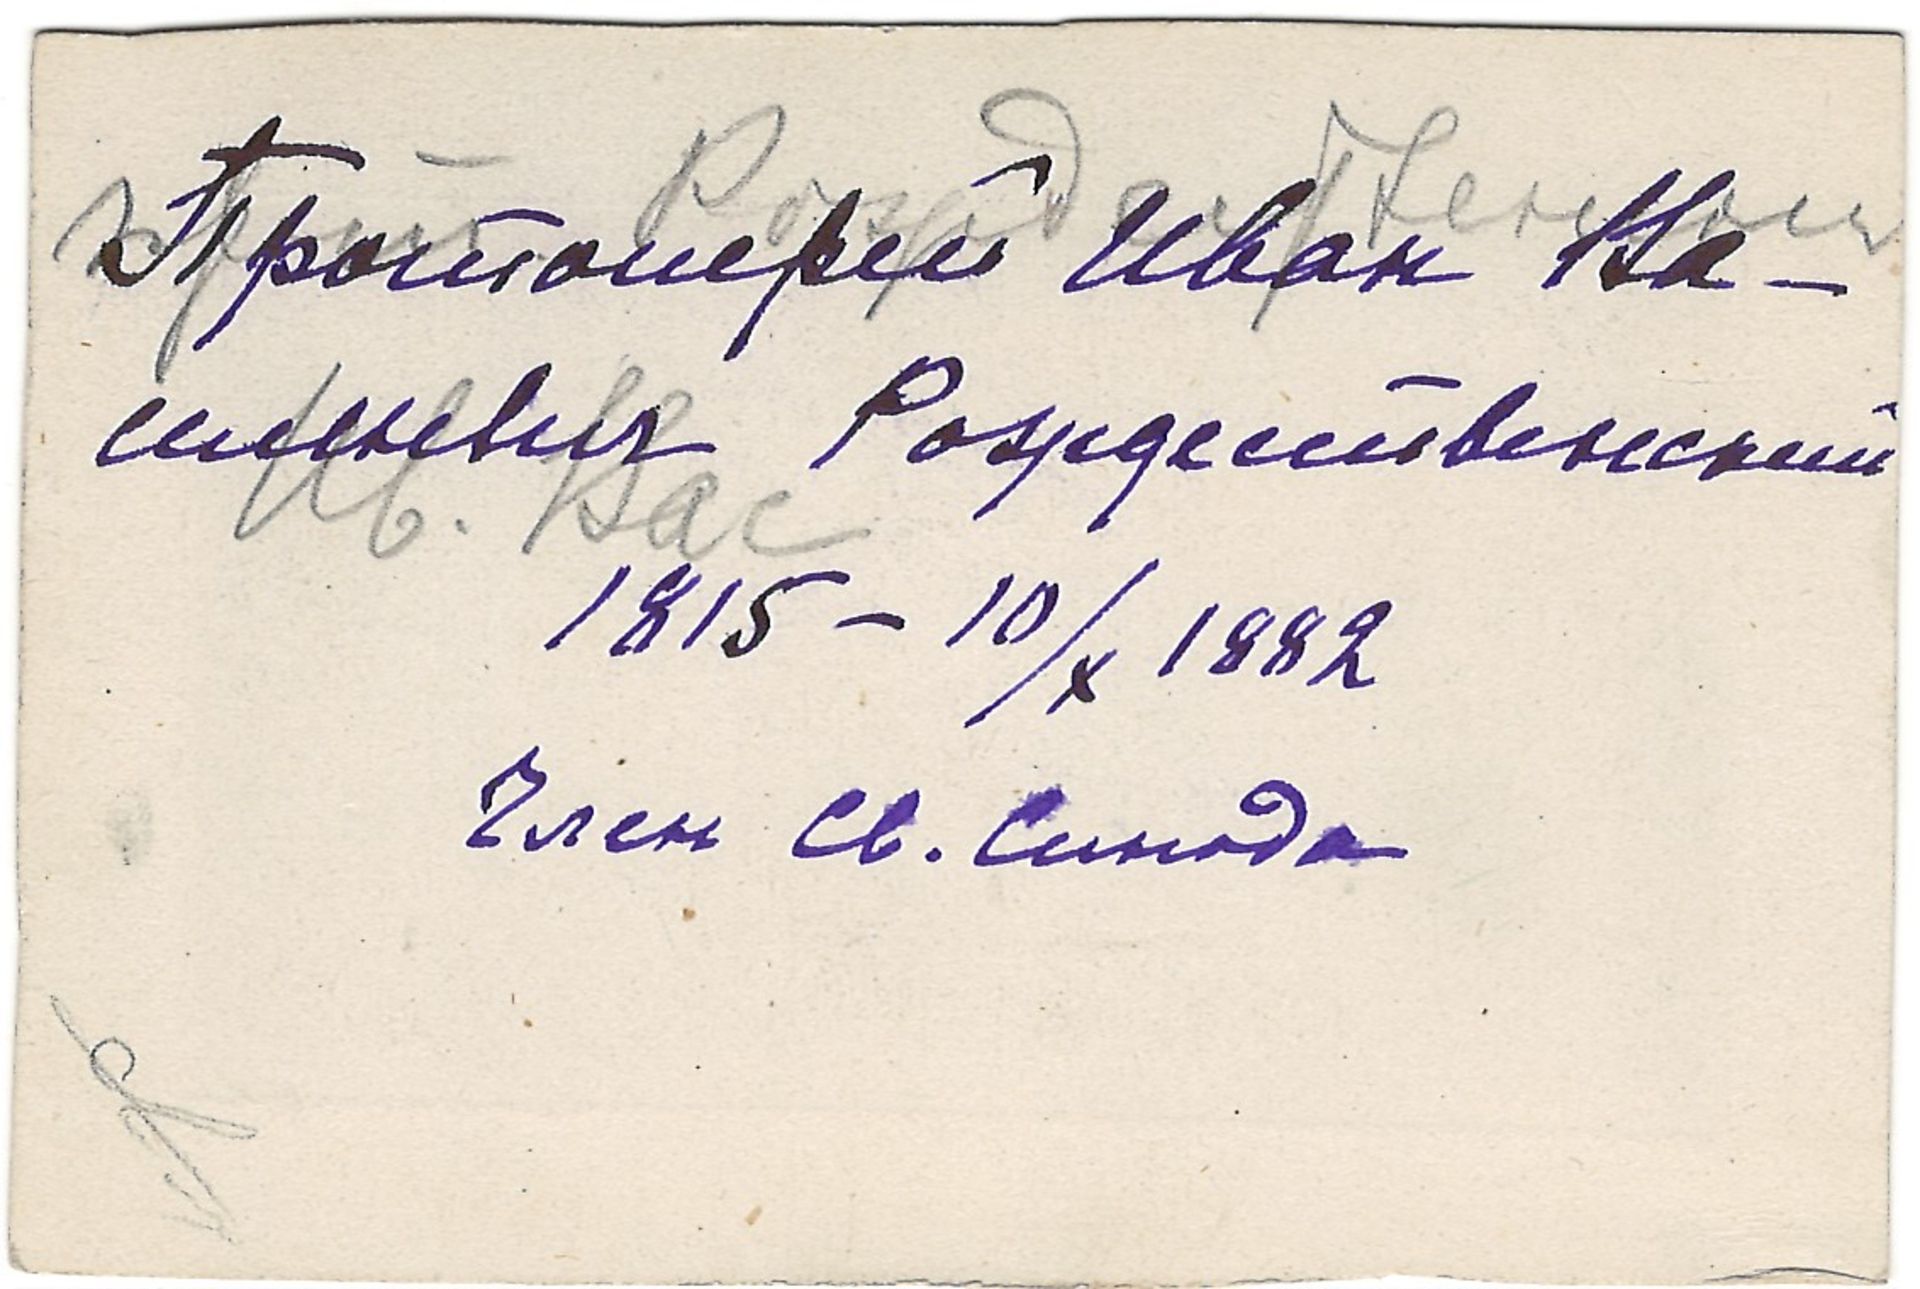 Протоиерей Иван Ва-
сильевич Рождественский
1815 – 10/X 1882
Член Св. Синода
прот. Рождественский
Ив. Вас